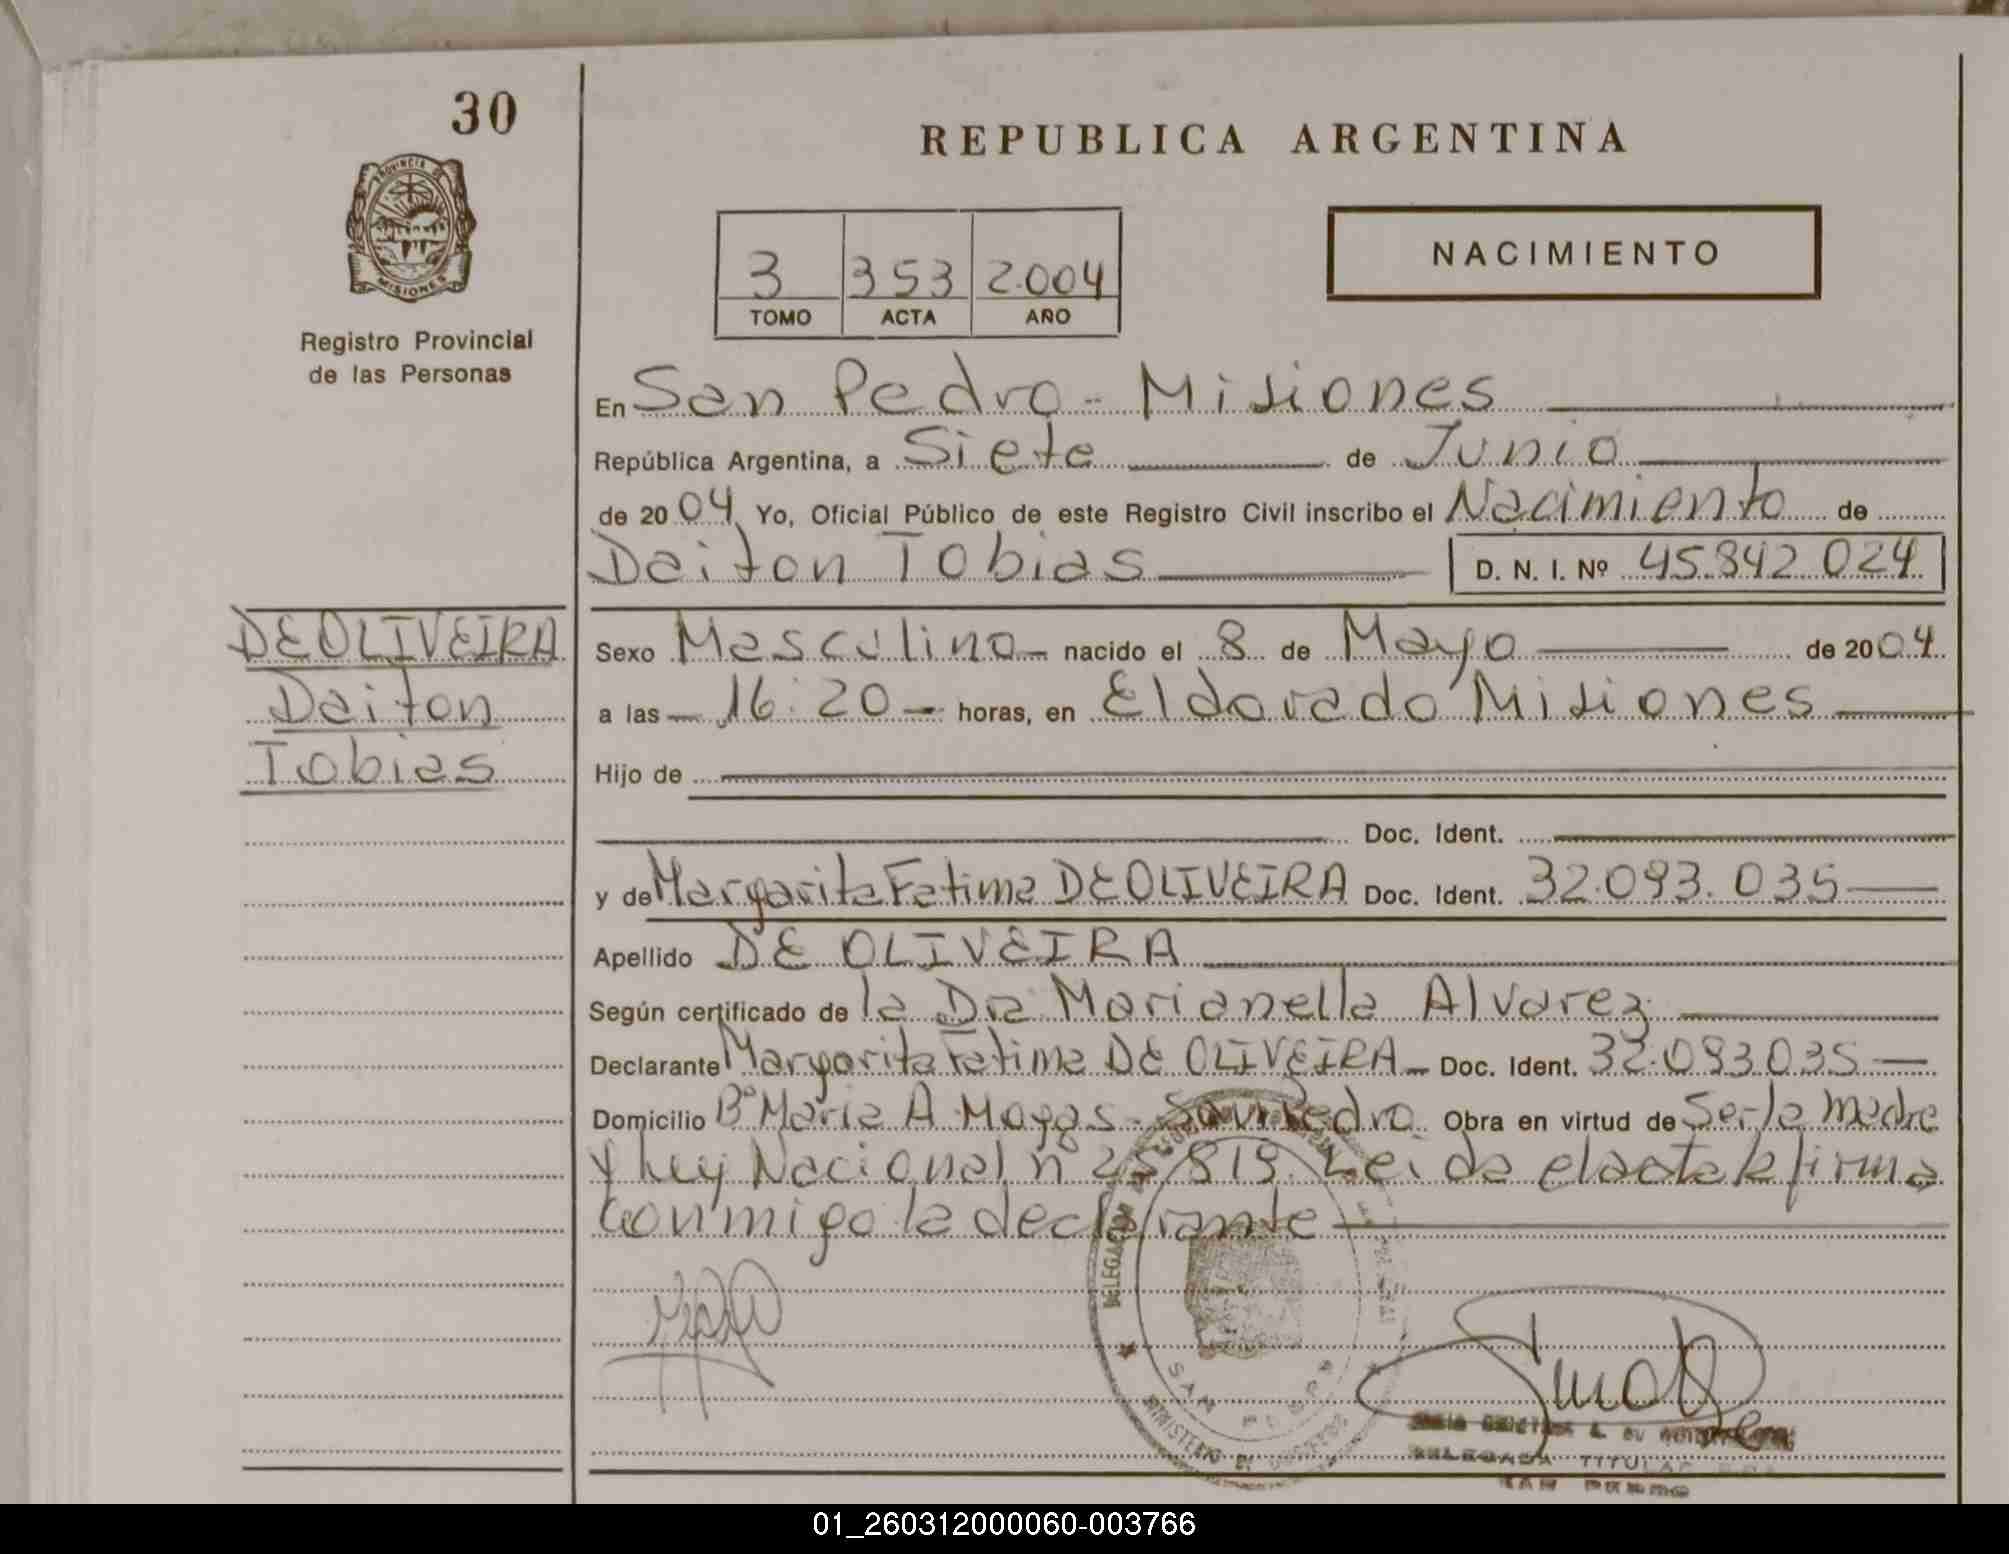 30
REPUBLICA ARGENTINA
PROVINCIA DE
MISIONES
Registro Provincial
de las Personas
NACIMIENTO
3 353 2.004
TOMO ACTA AÑO
En San Pedro - Misiones
República Argentina, a Siete de Junio
de 2004 Yo, Oficial Público de este Registro Civil inscribo el Nacimiento de
Deiton Tobias D. N. I. Nº 45.842.024
DE OLIVEIRA
Deiton
Tobias
Sexo Masculino nacido el 8 de Mayo de 2004
a las 16:20 horas, en Eldorado Misiones
Hijo de
Doc. Ident.
y de Margarita Fatima DE OLIVEIRA Doc. Ident. 32.093.035
Apellido DE OLIVEIRA
Según certificado de la Dra Marianella Alvarez
Declarante Margarita Fatima DE OLIVEIRA Doc. Ident. 32.093.035
Domicilio Bº Maria A. Moyas - San Pedro Obra en virtud de Ser la madre
y Ley Nacional nº 25.819. Leida el acta la firma
conmigo la declarante
DELEGACION
SAN PEDRO
MINISTERIO DE
DELEGADA TITULAR
SAN PEDRO
01_260312000060-003766